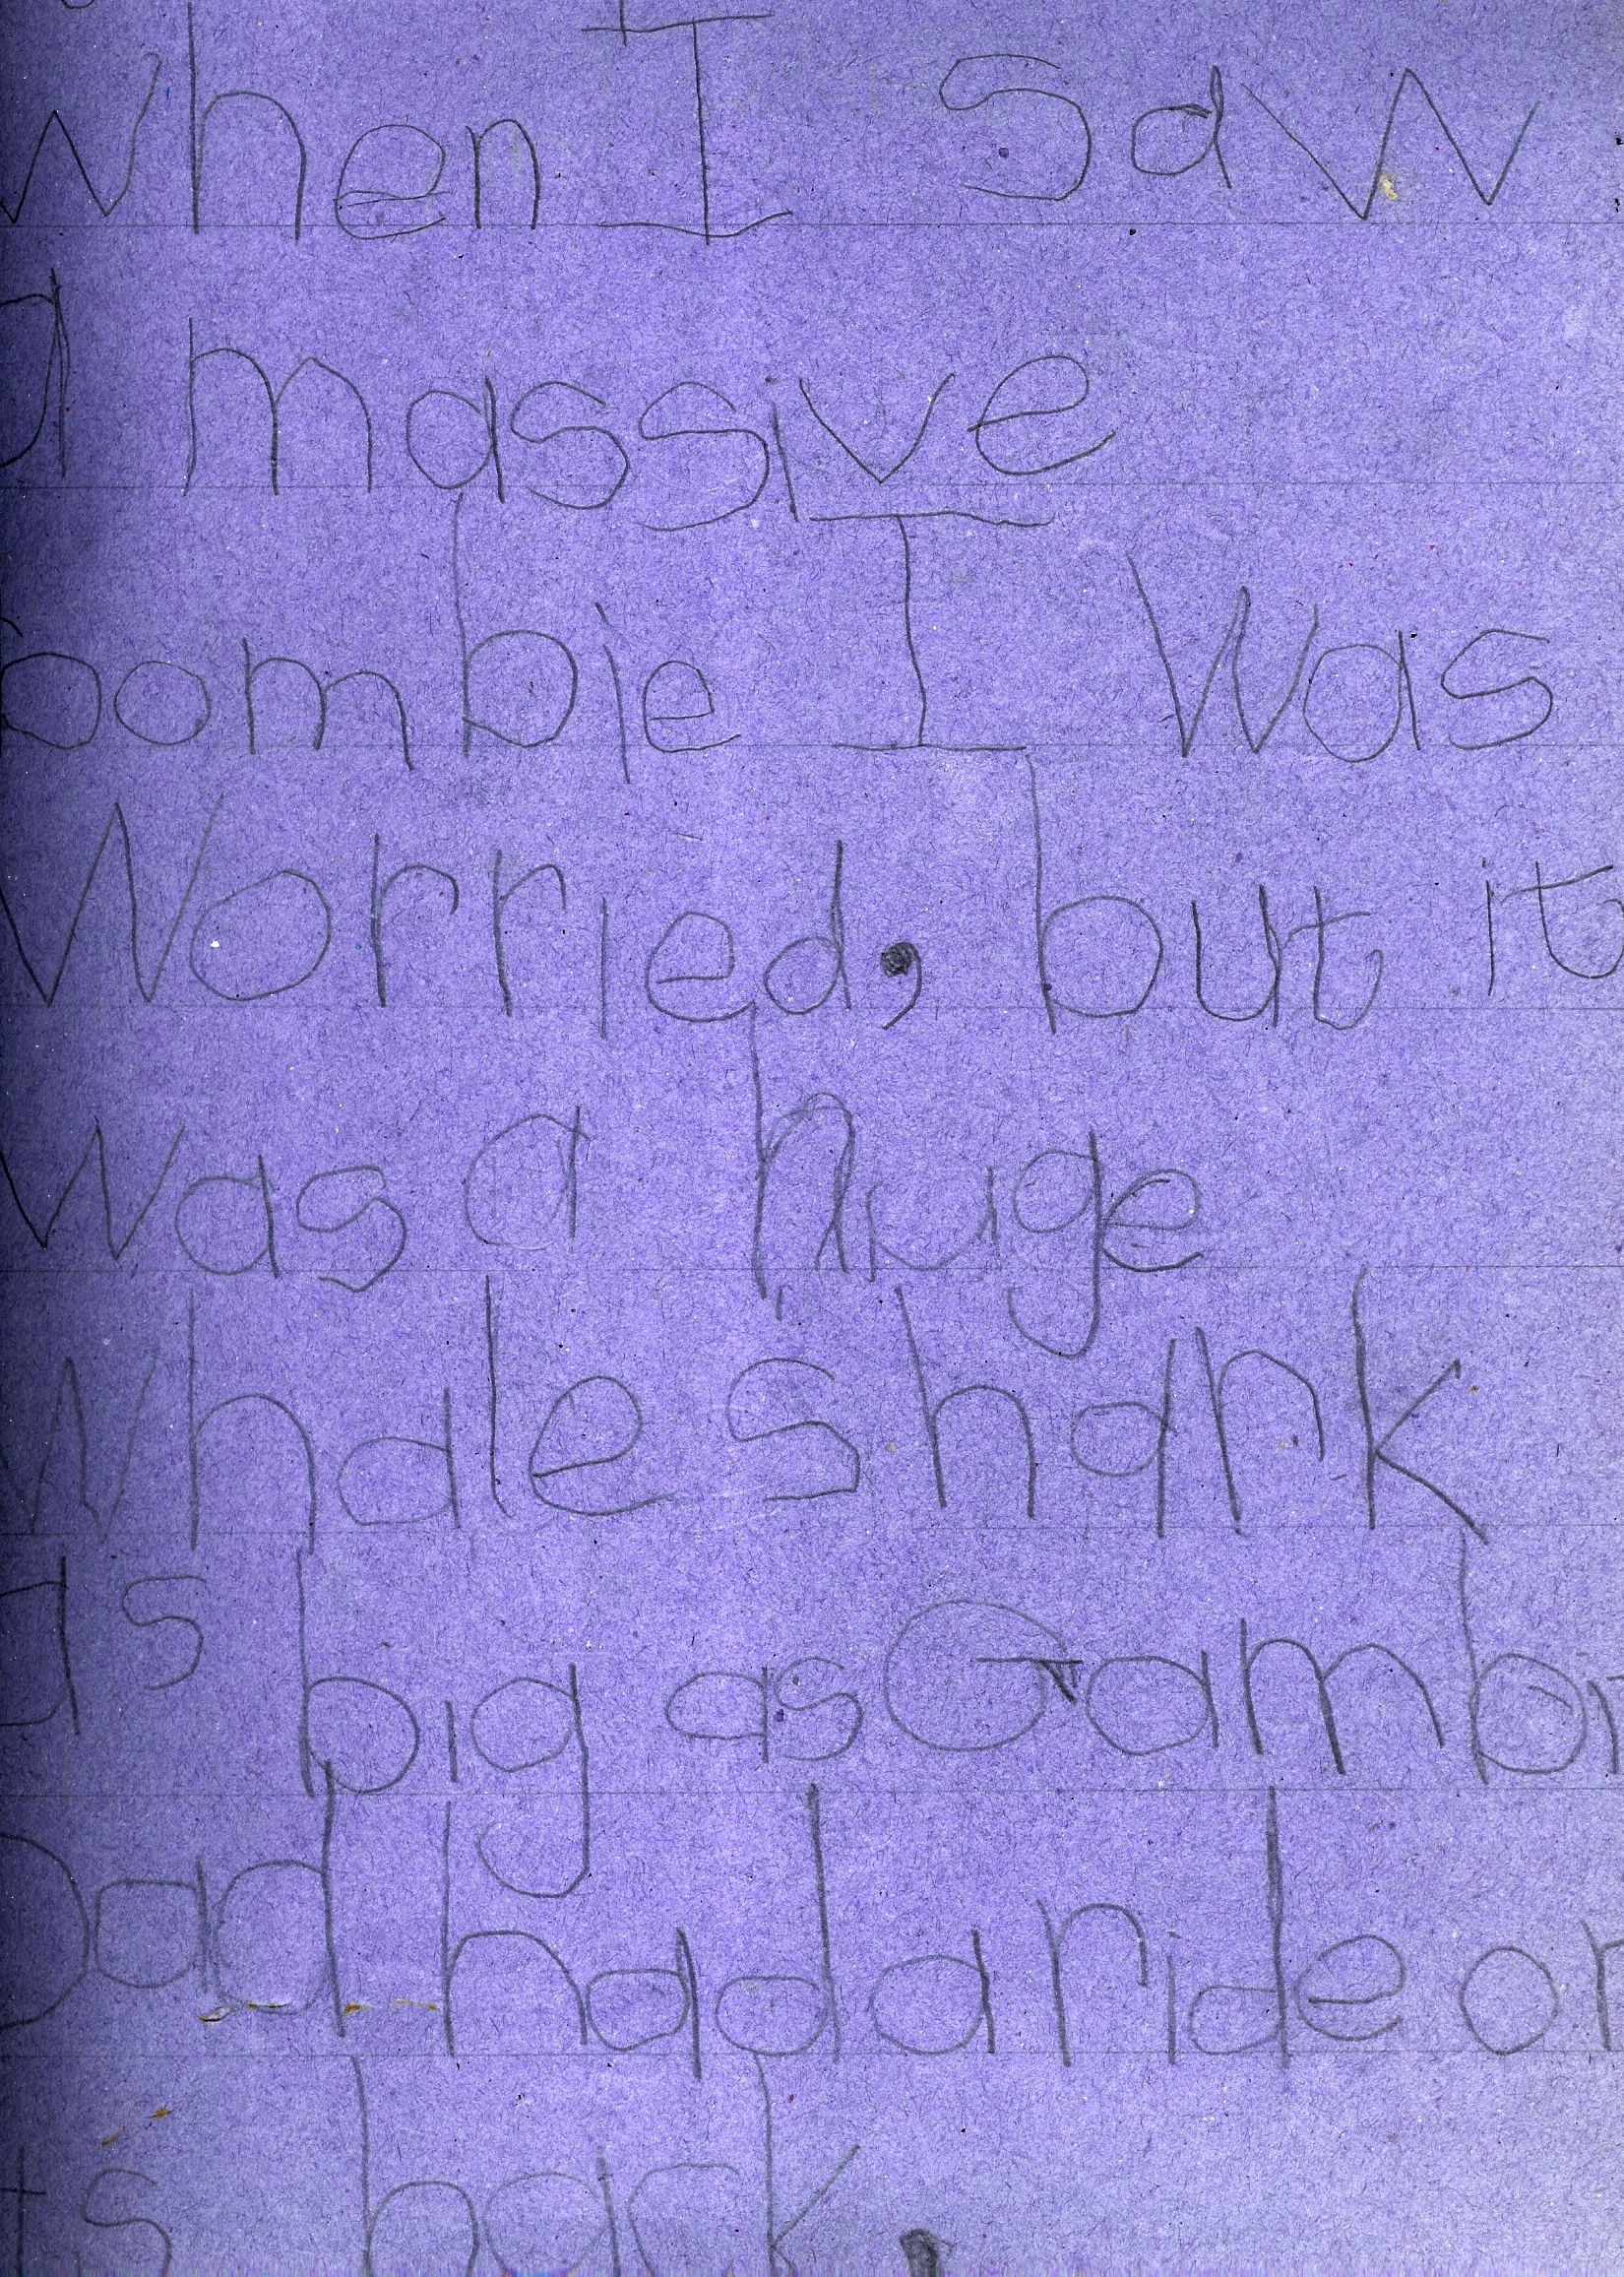 When I saw
a massive
bombie I was
Worried, but it
was a huge
Whale shark
as big as Gambor
Dad had a ride on
its back.